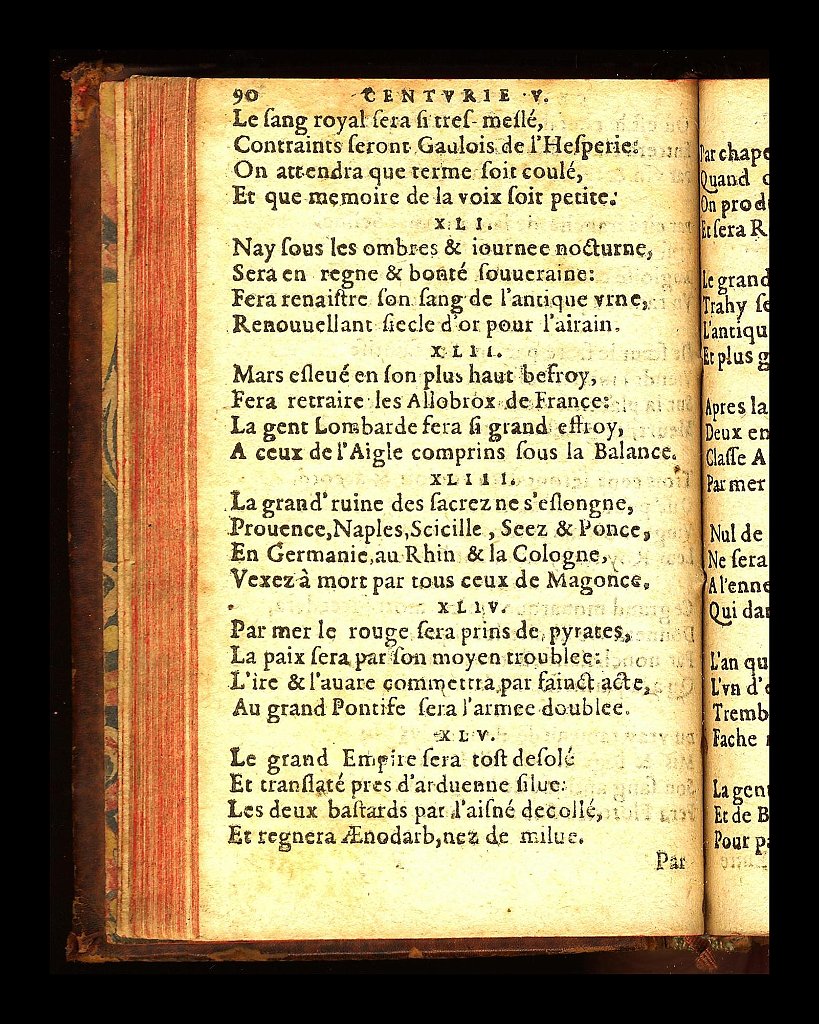 90 CENTVRIE V.
Le ſang royal ſera ſi treſ meſlé,
Contraints ſeront Gaulois de l'Heſperie:
On attendra que terme ſoit coulé,
Et que memoire de la voix ſoit petite.
XLI.
Nay ſous les ombres & iournee nocturne,
Sera en regne & bonté ſouueraine:
Fera renaiſtre ſon ſang de l'antique vrne,
Renouuellant ſiecle d'or pour l'airain.
XLII.
Mars eſleué en ſon plus haut befroy,
Fera retraire les Allobrox de France:
La gent Lombarde fera ſi grand effroy,
A ceux de l'Aigle comprins ſous la Balance.
XLIII.
La grand' ruine des ſacrez ne s'eſlongne,
Prouence, Naples, Scicille, Seez & Ponce,
En Germanie, au Rhin & la Cologne,
Vexez à mort par tous ceux de Magonce.
XLIV.
Par mer le rouge ſera prins de pyrates,
La paix ſera par ſon moyen troublee:
L'ire & l'auare commettra par ſainct acte,
Au grand Pontife ſera l'armee doublee.
XLV.
Le grand Empire ſera toſt deſolé
Et tranſlaté pres d'arduenne ſilue:
Les deux baſtards par l'aiſné decollé,
Et regnera Ænodarb, nez de milue.
Par
Par chape
Quand
On prod
Et ſera R
Le grand
Trahy ſe
L'antiqu
Et plus g
Apres la
Deux en
Claſſe A
Par mer
Nul de
Ne ſera
A l'enne
Qui dan
L'an qu
L'vn d'
Tremb
Fache
La gent
Et de B
Pour pa